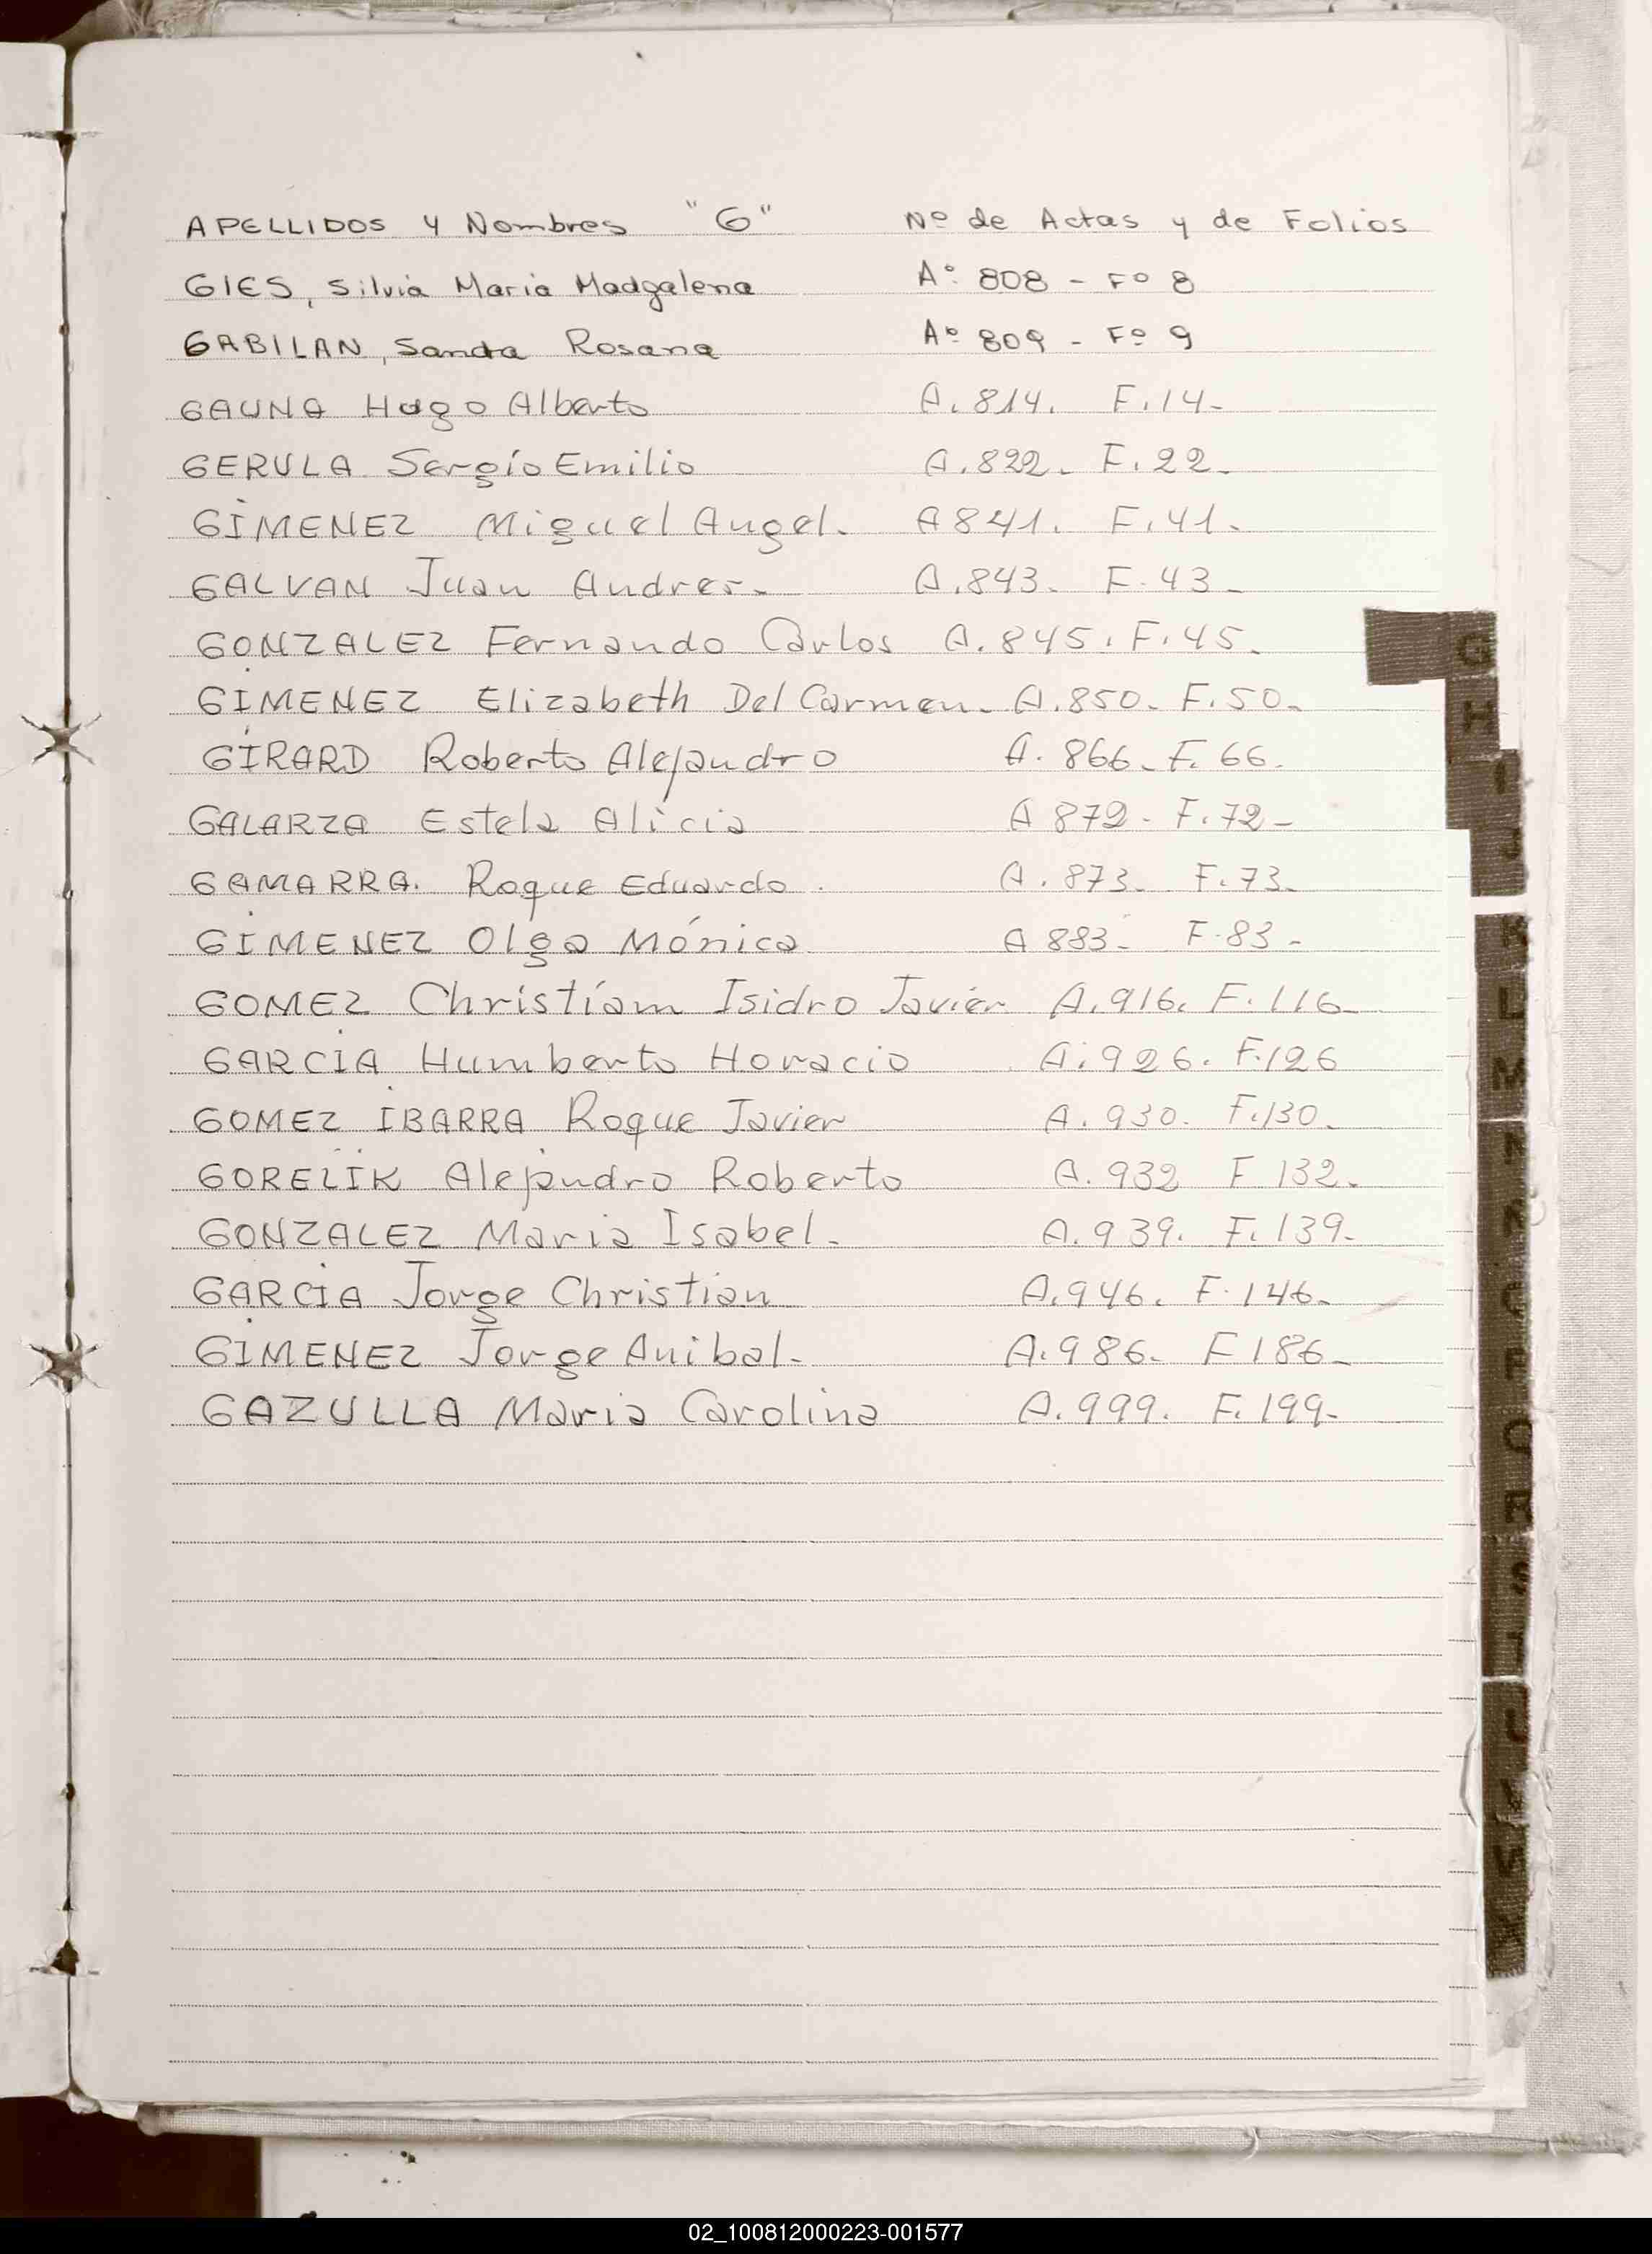 APELLIDOS y Nombres "G" Nº de Actas y de Folios
GIES, Silvia Maria Madgalena Aº 808 - Fº 8
GABILAN, Sandra Rosana Aº 809 - Fº 9
GAUNA Hugo Alberto A. 814. F. 14-
GERULA Sergio Emilio A. 822. F. 22-
GIMENEZ Miguel Angel. A 841. F. 41.
GALVAN Juan Andres- A. 843. F. 43-
GONZALEZ Fernando Carlos A. 845. F. 45.
GIMENEZ Elizabeth Del Carmen. A. 850. F. 50.
GIRARD Roberto Alejandro A. 866. F. 66.
GALARZA Estela Alicia A 872. F. 72-
GAMARRA. Roque Eduardo. A. 873. F. 73.
GIMENEZ Olga Mónica A 883- F. 83-
GOMEZ Christiam Isidro Javier A. 916. F. 116-
GARCIA Humberto Horacio A. 926. F. 126
GOMEZ IBARRA Roque Javier A. 930. F. 130.
GORELIK Alejandro Roberto A. 932 F 132.
GONZALEZ Maria Isabel. A. 939. F. 139-
GARCIA Jorge Christian A. 946. F. 146.
GIMENEZ Jorge Anibal. A. 986. F 186-
GAZULLA Maria Carolina A. 999. F. 199-
G
H
I
J
K
L
M
S
02_100812000223-001577